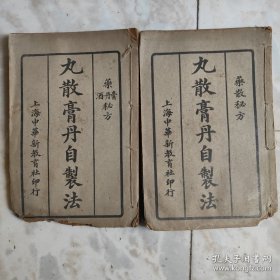 藥酒丹膏秘方
丸散膏丹自製法
上海中華新教育社印行
藥散秘方
丸散膏丹自製法
上海中華新教育社印行